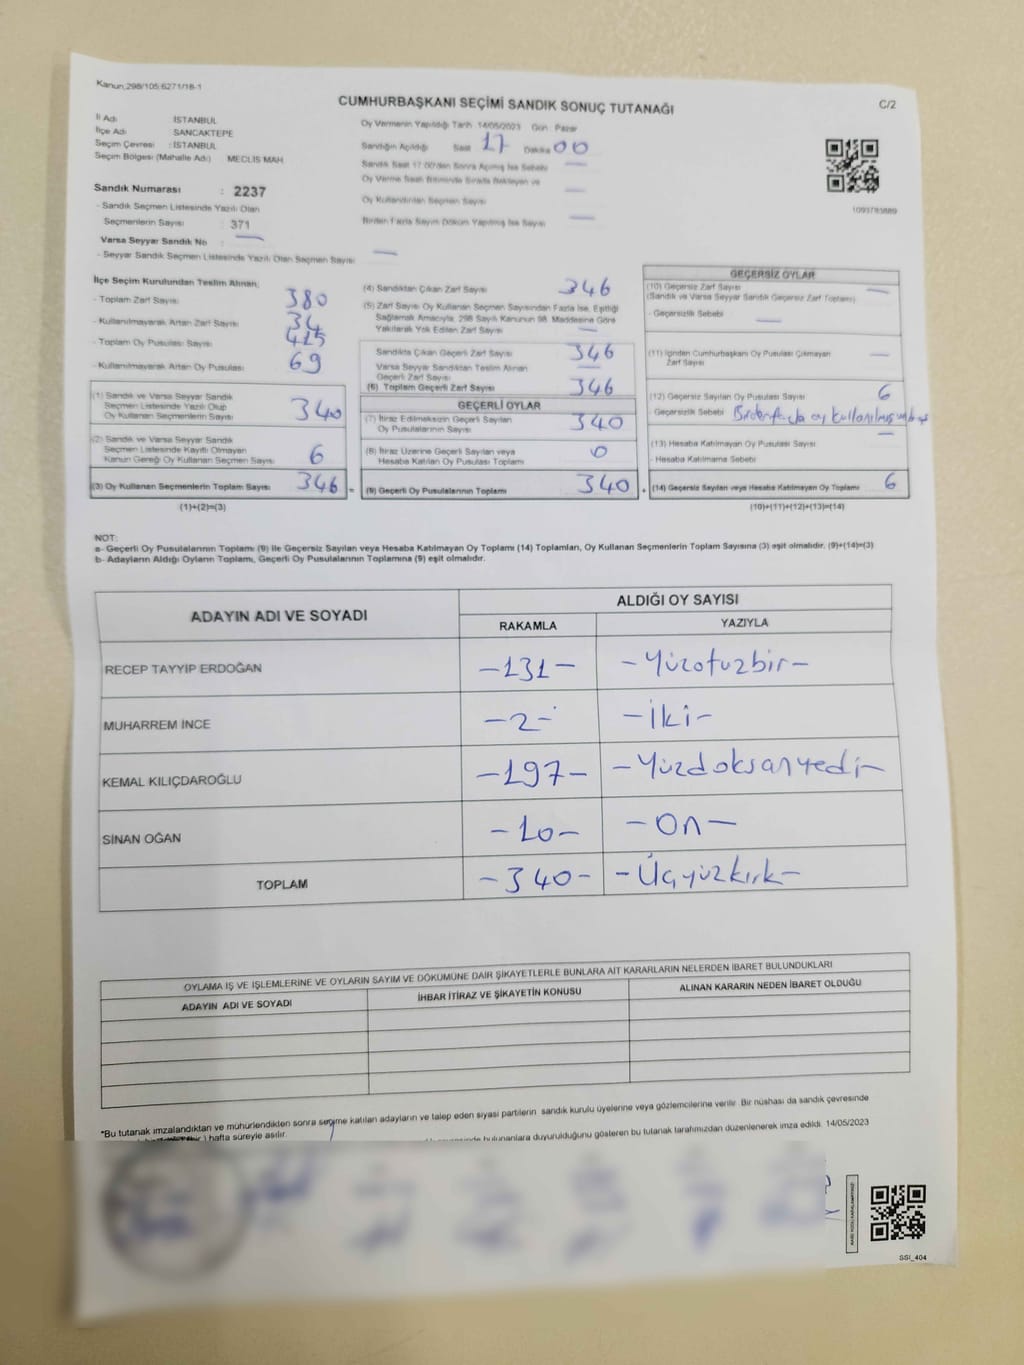 Kanun,298/105;6271/18-1
CUMHURBAŞKANI SEÇİMİ SANDIK SONUÇ TUTANAĞI
C/2
İl Adı : İSTANBUL
İlçe Adı : SANCAKTEPE
Seçim Çevresi : İSTANBUL
Seçim Bölgesi (Mahalle Adı) MECLİS MAH
Sandık Numarası : 2237
- Sandık Seçmen Listesinde Yazılı Olan
Seçmenlerin Sayısı : 371
Varsa Seyyar Sandık No : —
- Seyyar Sandık Seçmen Listesinde Yazılı Olan Seçmen Sayısı : —
Oy Vermenin Yapıldığı Tarih 14/05/2023 Gün Pazar
Sandığın Açıldığı Saat 17 Dakika 00
Sandık Saat 17:00'den Sonra Açılmış İse Sebebi —
Oy Verme Saati Bitiminde Sırada Bekleyen ve
Oy Kullandırılan Seçmen Sayısı —
Birden Fazla Sayım Döküm Yapılmış İse Sayısı —
1093783889
İlçe Seçim Kurulundan Teslim Alınan;
- Toplam Zarf Sayısı 380
- Kullanılmayarak Artan Zarf Sayısı 34
- Toplam Oy Pusulası Sayısı 415
- Kullanılmayarak Artan Oy Pusulası 69
(1) Sandık ve Varsa Seyyar Sandık
Seçmen Listesinde Yazılı Olup
Oy Kullanan Seçmenlerin Sayısı 340
(2) Sandık ve Varsa Seyyar Sandık
Seçmen Listesinde Kayıtlı Olmayan
Kanun Gereği Oy Kullanan Seçmen Sayısı 6
(3) Oy Kullanan Seçmenlerin Toplam Sayısı 346 =
(1)+(2)=(3)
(4) Sandıktan Çıkan Zarf Sayısı 346
(5) Zarf Sayısı Oy Kullanan Seçmen Sayısından Fazla İse, Eşitliği
Sağlamak Amacıyla, 298 Sayılı Kanunun 98. Maddesine Göre
Yakılarak Yok Edilen Zarf Sayısı —
Sandıkta Çıkan Geçerli Zarf Sayısı 346
Varsa Seyyar Sandıktan Teslim Alınan
Geçerli Zarf Sayısı —
(6) Toplam Geçerli Zarf Sayısı 346
GEÇERLİ OYLAR
(7) İtiraz Edilmeksizin Geçerli Sayılan
Oy Pusulalarının Sayısı 340
(8) İtiraz Üzerine Geçerli Sayılan veya
Hesaba Katılan Oy Pusulası Toplamı 0
(9) Geçerli Oy Pusulalarının Toplamı 340 +
GEÇERSİZ OYLAR
(10) Geçersiz Zarf Sayısı —
(Sandık ve Varsa Seyyar Sandık Geçersiz Zarf Toplamı)
- Geçersizlik Sebebi —
(11) İçinden Cumhurbaşkanı Oy Pusulası Çıkmayan
Zarf Sayısı —
(12) Geçersiz Sayılan Oy Pusulası Sayısı 6
Geçersizlik Sebebi Birden fazla oy kullanılmış
(13) Hesaba Katılmayan Oy Pusulası Sayısı —
- Hesaba Katılmama Sebebi
(14) Geçersiz Sayılan veya Hesaba Katılmayan Oy Toplamı 6
(10)+(11)+(12)+(13)=(14)
NOT:
a- Geçerli Oy Pusulalarının Toplamı (9) ile Geçersiz Sayılan veya Hesaba Katılmayan Oy Toplamı (14) Toplamları, Oy Kullanan Seçmenlerin Toplam Sayısına (3) eşit olmalıdır. (9)+(14)=(3)
b- Adayların Aldığı Oyların Toplamı, Geçerli Oy Pusulalarının Toplamına (9) eşit olmalıdır.
ADAYIN ADI VE SOYADI
ALDIĞI OY SAYISI
RAKAMLA YAZIYLA
RECEP TAYYİP ERDOĞAN -131- -Yüzotuzbir-
MUHARREM İNCE -2- -İki-
KEMAL KILIÇDAROĞLU -197- -Yüzdoksanyedi-
SİNAN OĞAN -10- -On-
TOPLAM -340- -Üçyüzkırk-
OYLAMA İŞ VE İŞLEMLERİNE VE OYLARIN SAYIM VE DÖKÜMÜNE DAİR ŞİKAYETLERLE BUNLARA AİT KARARLARIN NELERDEN İBARET BULUNDUKLARI
ADAYIN ADI VE SOYADI İHBAR İTİRAZ VE ŞİKAYETİN KONUSU ALINAN KARARIN NEDEN İBARET OLDUĞU
*Bu tutanak imzalandıktan ve mühürlendikten sonra seçime katılan adayların ve talep eden siyasi partilerin sandık kurulu üyelerine veya gözlemcilerine verilir. Bir nüshası da sandık çevresinde
) hafta süreyle asılır.
bulunanlara duyurulduğunu gösteren bu tutanak tarafımızdan düzenlenerek imza edildi. 14/05/2023
SSI_404